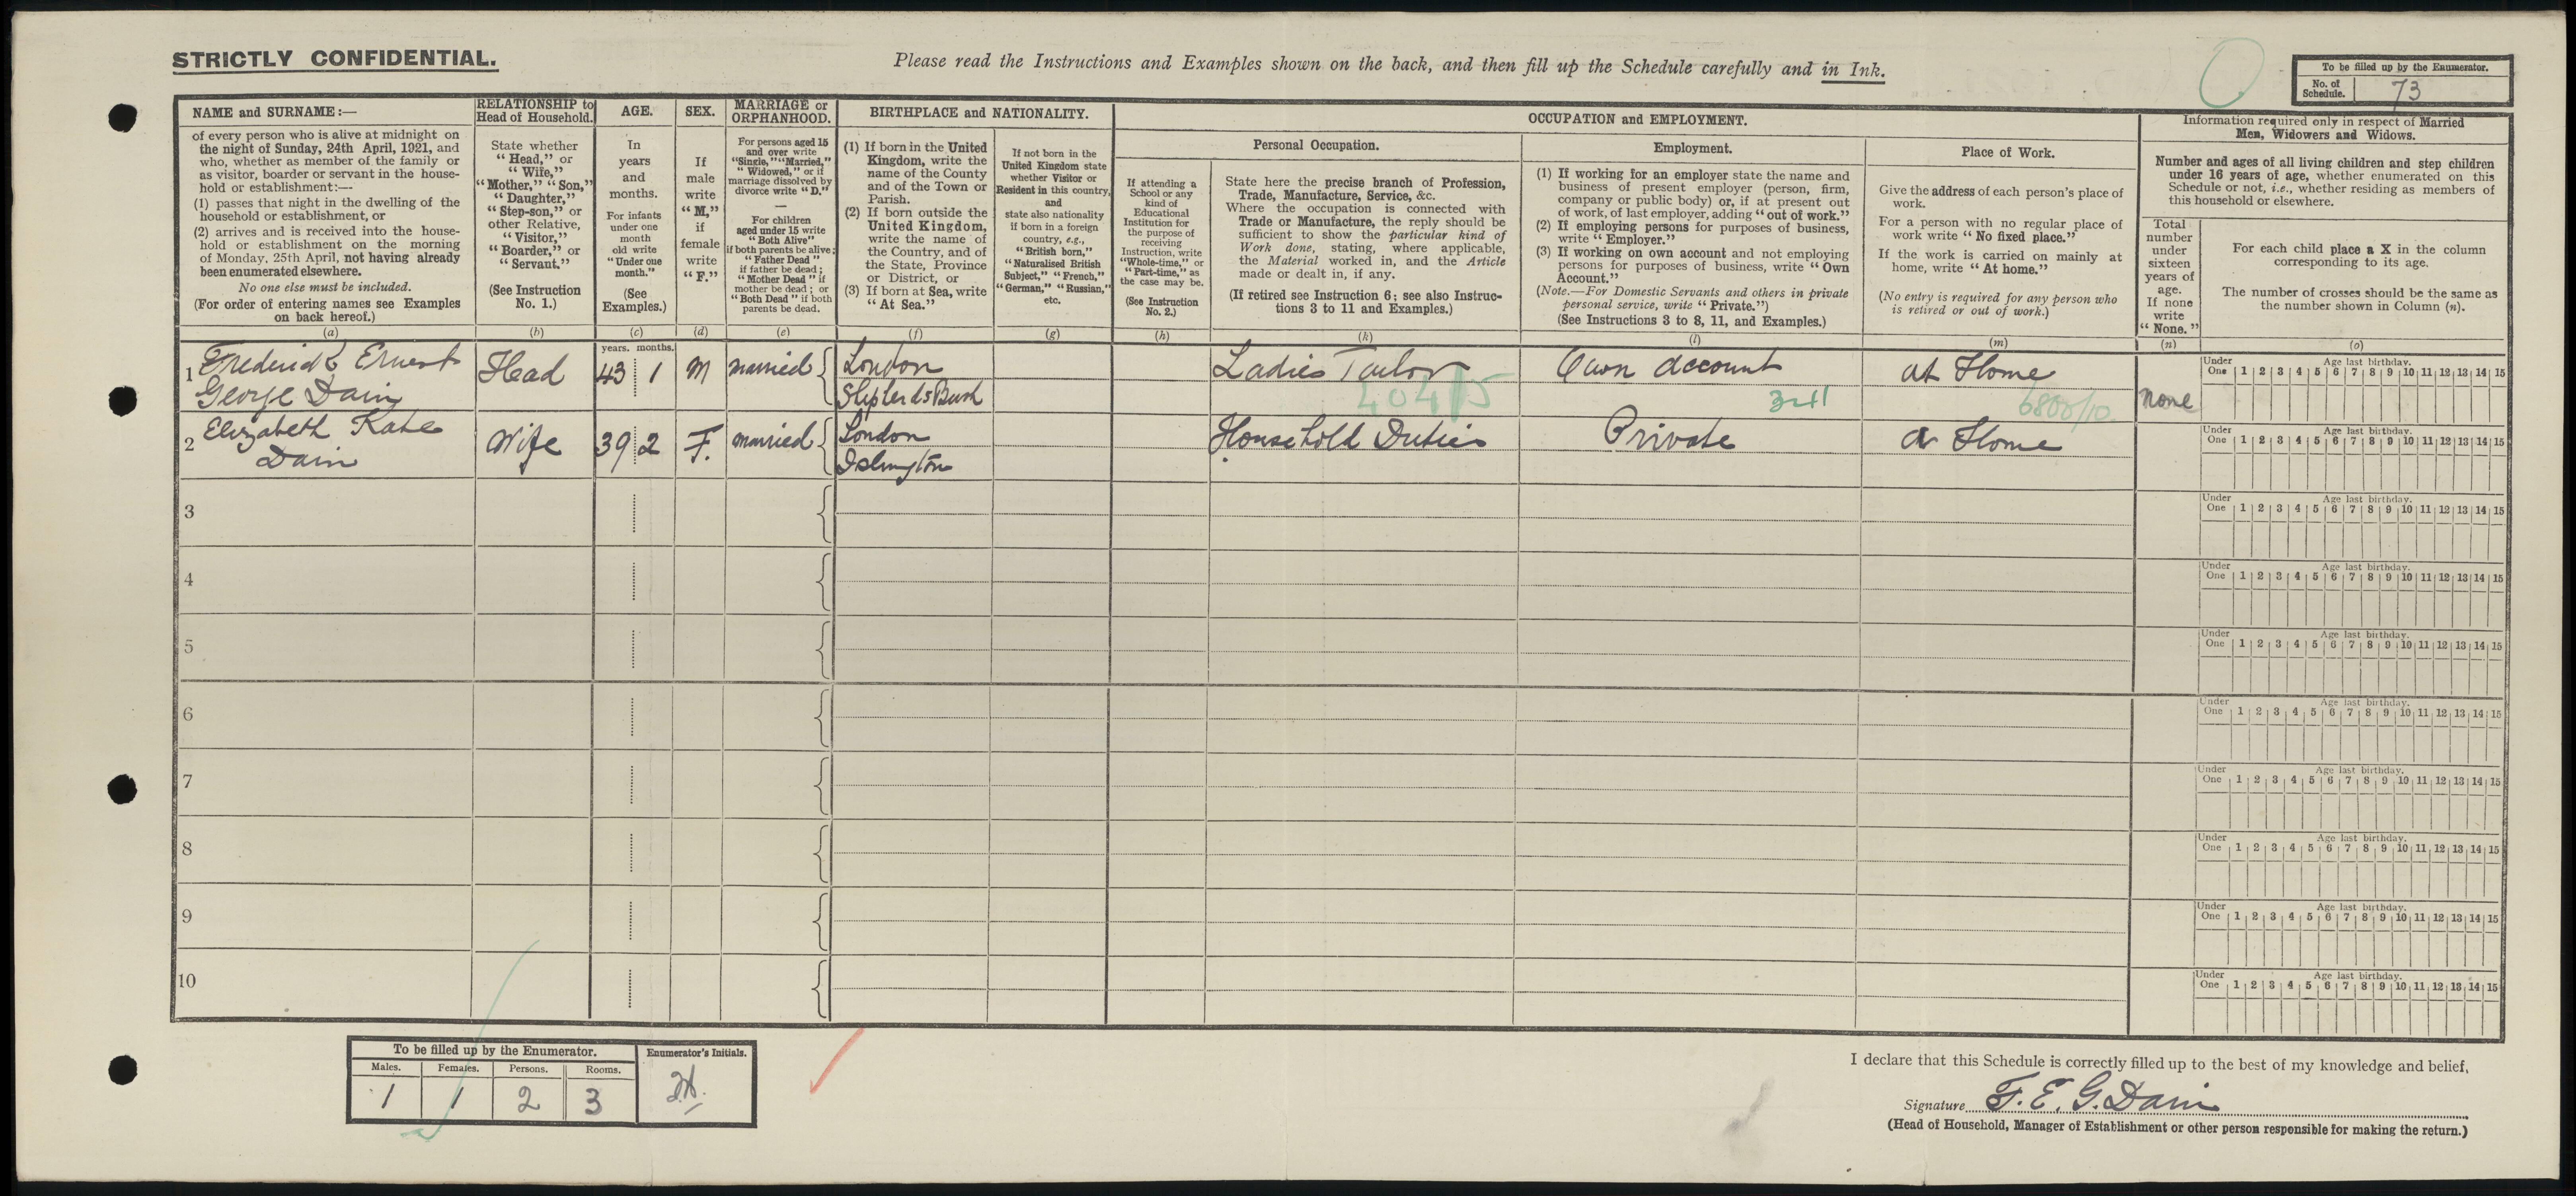 STRICTLY CONFIDENTIAL.
Please read the Instructions and Examples shown on the back, and then fill up the Schedule carefully and in Ink.
To be filled up by the Enumerator.
No. of Schedule. 73
NAME and SURNAME:—
of every person who is alive at midnight on
the night of Sunday, 24th April, 1921, and
who, whether as member of the family or
as visitor, boarder or servant in the house-
hold or establishment:—
(1) passes that night in the dwelling of the
household or establishment, or
(2) arrives and is received into the house-
hold or establishment on the morning
of Monday, 25th April, not having already
been enumerated elsewhere.
No one else must be included.
(For order of entering names see Examples
on back hereof.)
(a)
RELATIONSHIP to
Head of Household.
State whether
"Head," or
"Wife,"
"Mother," "Son,"
"Daughter,"
"Step-son," or
other Relative,
"Visitor,"
"Boarder," or
"Servant."
(See Instruction
No. 1.)
(b)
AGE.
In
years
and
months.
For infants
under one
month
old write
"Under one
month."
(See
Examples.)
(c)
SEX.
If
male
write
"M,"
if
female
write
"F."
(d)
MARRIAGE or
ORPHANHOOD.
For persons aged 15
and over write
"Single," "Married,"
"Widowed," or if
marriage dissolved by
divorce write "D."
—
For children
aged under 15 write
"Both Alive"
if both parents be alive;
"Father Dead"
if father be dead;
"Mother Dead" if
mother be dead; or
"Both Dead" if both
parents be dead.
(e)
BIRTHPLACE and NATIONALITY.
(1) If born in the United
Kingdom, write the
name of the County
and of the Town or
Parish.
(2) If born outside the
United Kingdom,
write the name of
the Country, and of
the State, Province
or District, or
(3) If born at Sea, write
"At Sea."
(f)
If not born in the
United Kingdom state
whether Visitor or
Resident in this country,
and
state also nationality
if born in a foreign
country, e.g.,
"British born,"
"Naturalised British
Subject," "French,"
"German," "Russian,"
etc.
(g)
OCCUPATION and EMPLOYMENT.
If attending a
School or any
kind of
Educational
Institution for
the purpose of
receiving
Instruction, write
"Whole-time," or
"Part-time," as
the case may be.
(See Instruction
No. 2.)
(h)
Personal Occupation.
State here the precise branch of Profession,
Trade, Manufacture, Service, &c.
Where the occupation is connected with
Trade or Manufacture, the reply should be
sufficient to show the particular kind of
Work done, stating, where applicable,
the Material worked in, and the Article
made or dealt in, if any.
(If retired see Instruction 6; see also Instruc-
tions 3 to 11 and Examples.)
(k)
Employment.
(1) If working for an employer state the name and
business of present employer (person, firm,
company or public body) or, if at present out
of work, of last employer, adding "out of work."
(2) If employing persons for purposes of business,
write "Employer."
(3) If working on own account and not employing
persons for purposes of business, write "Own
Account."
(Note.—For Domestic Servants and others in private
personal service, write "Private.")
(See Instructions 3 to 8, 11, and Examples.)
(l)
Place of Work.
Give the address of each person's place of
work.
For a person with no regular place of
work write "No fixed place."
If the work is carried on mainly at
home, write "At home."
(No entry is required for any person who
is retired or out of work.)
(m)
Information required only in respect of Married
Men, Widowers and Widows.
Number and ages of all living children and step children
under 16 years of age, whether enumerated on this
Schedule or not, i.e., whether residing as members of
this household or elsewhere.
Total
number
under
sixteen
years of
age.
If none
write
"None."
(n)
For each child place a X in the column
corresponding to its age.
The number of crosses should be the same as
the number shown in Column (n).
(o)
years. months.
1 Frederick Ernest George Dain Head 43 1 M married London Shepherds Bush Ladies Tailor 404/5 Own account 3-11 at Home 6800/10 none
Under One Age last birthday. 1 2 3 4 5 6 7 8 9 10 11 12 13 14 15
2 Elizabeth Kate Dain Wife 39 2 F. married London Islington Household Duties Private at Home
Under One Age last birthday. 1 2 3 4 5 6 7 8 9 10 11 12 13 14 15
3
Under One Age last birthday. 1 2 3 4 5 6 7 8 9 10 11 12 13 14 15
4
Under One Age last birthday. 1 2 3 4 5 6 7 8 9 10 11 12 13 14 15
5
Under One Age last birthday. 1 2 3 4 5 6 7 8 9 10 11 12 13 14 15
6
Under One Age last birthday. 1 2 3 4 5 6 7 8 9 10 11 12 13 14 15
7
Under One Age last birthday. 1 2 3 4 5 6 7 8 9 10 11 12 13 14 15
8
Under One Age last birthday. 1 2 3 4 5 6 7 8 9 10 11 12 13 14 15
9
Under One Age last birthday. 1 2 3 4 5 6 7 8 9 10 11 12 13 14 15
10
Under One Age last birthday. 1 2 3 4 5 6 7 8 9 10 11 12 13 14 15
To be filled up by the Enumerator.
Males. Females. Persons. Rooms.
1 1 2 3
Enumerator's Initials.
I declare that this Schedule is correctly filled up to the best of my knowledge and belief,
Signature F. E. G. Dain
(Head of Household, Manager of Establishment or other person responsible for making the return.)